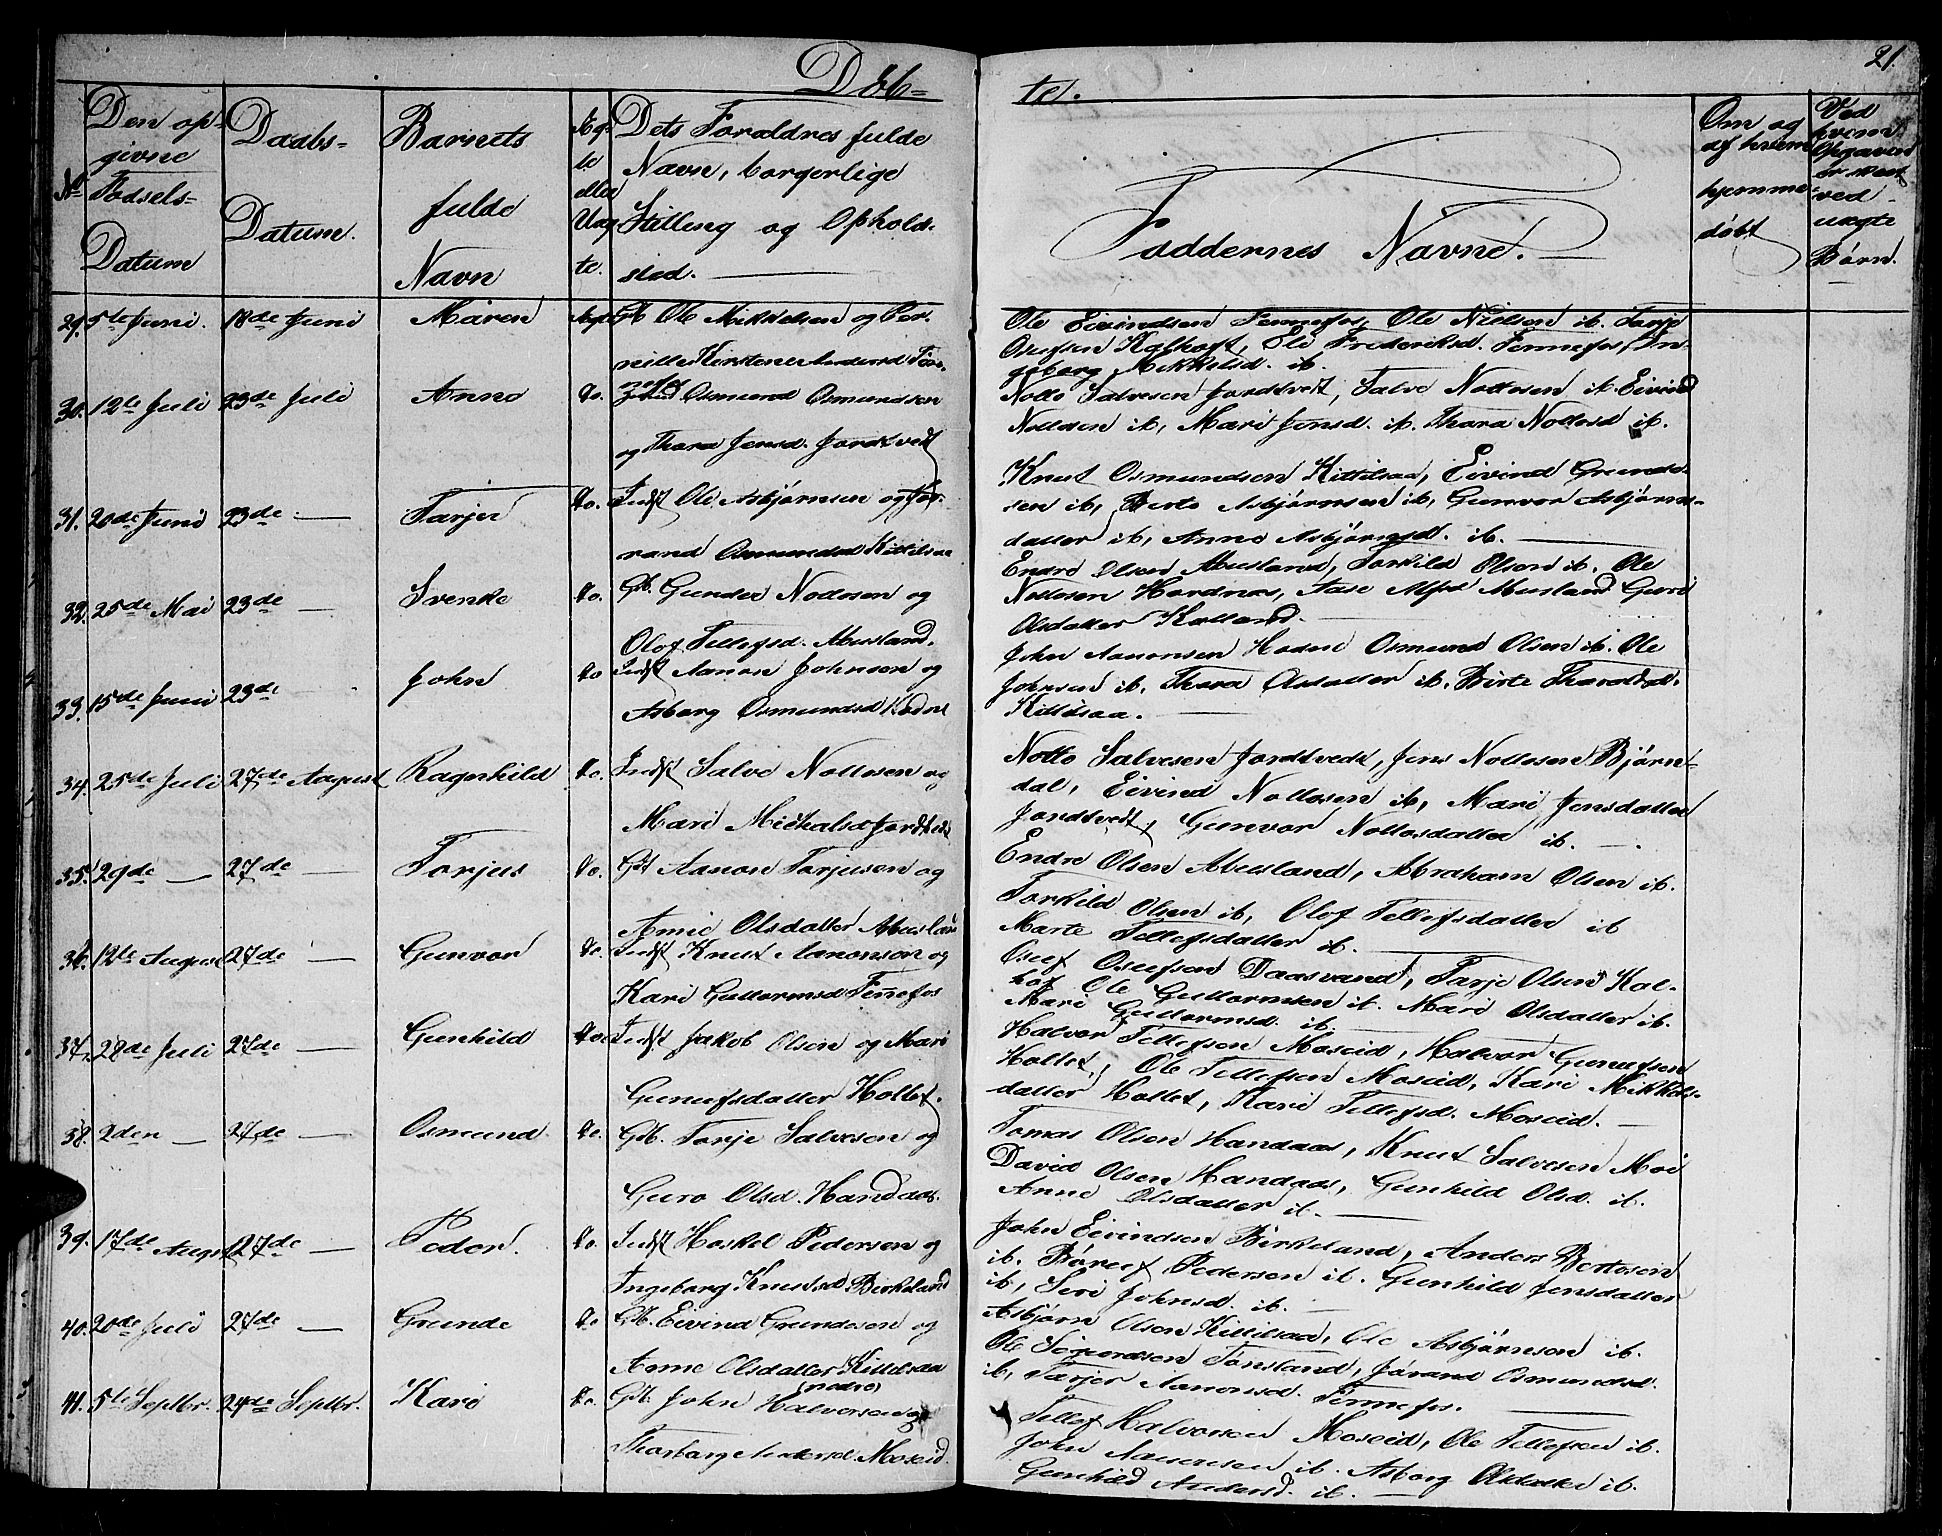 Døb=
te.
21.
No
Den op-
givne
Fødsels=
Datum
Daabs=
Datum.
Barnets
fulde
Navn
Æg-
te
eller
Uæg
te.
Dets Forældres fulde
Navn, borgerlige
Stilling og Opholds-
sted.
Faddernes Navne.
Om og
af hvem
hjemme
døbt
Ved
hvem
Opgaven
er skeet
ved
uægte
Børn.
29. 5te Juni. 18de Juni Maren Ægte Gb. Ole Mikkelsen og Per-
nille Kirstene Andersd Fen-
nefos
Ole Eivindsen Fennefos, Ole Nielsen ib. Tarje
Osufsen Kalhoft, Ole Frederiksd. Fennefos, In-
geborg Mikkelsd. ib.
30. 12te Juli 23de Juli Anne do. Osmund Osmundsen
og Thora Jensd. Jordtvedt
Notto Salvesen Jordtvedt, Salve Nottesen ib. Eivind
Nottesen ib, Mari Jensd. ib. Thora Nottesd ib.
31. 20de Juni 23de — Tarjer do. Indst Ole Asbjørnsen og Jø-
rand Osmundsd Kittilsaa
Knut Osmundsen Kittilsaa, Eivind Grunde-
sen ib, Berte Asbjørnsen ib, Gunvor Asbjørns-
datter ib, Anne Asbjørnsd. ib.
32. 25de Mai 23de — Svenke do. Gb. Gunder Nodesen og
Olof Tellefsd. Abusland.
Endre Olsen Abusland, Torkild Olsen ib. Ole
Nottesen Hordnæs, Aase Alfsd Abusland Guri
Olsdatter Kalland.
33. 15de Juni 23de John do Indst Aanon Johnsen og
Asborg Osmundsd Hodne
John Aanonsen Hodne Osmund Olsen ib. Ole
Johnsen ib. Thora Olsdatter ib. Birte Tharaldsd.
Kittilsaa.
34. 25de Juli 27de August Ragnhild do. Indst Salve Nottesen og
Mari Michalsd Jordtvedt
Notto Salvesen Jordtvedt, Jens Nottesen Bjørn-
dal, Eivind Nottesen ib, Mari Jensdatter
Jordtvedt, Gunvor Nottesdatter ib.
35. 29de — 27de — Torjus do. Gb Aanon Torjusen og
Anne Olsdatter Abusland
Endre Olsen Abusland, Abraham Olsen ib.
Torkild Olsen ib, Olof Tellefsdatter ib
Marte Tellefsdatter ib.
36. 12te August 27de — Gunvor do. Indst Knut Aanonson og
Kari Guttormsd Fennefos
Osuf Osufson Daasvand, Tarje Olsen Kal-
hof Ole Guttormsen ib. Mari Olsdatter ib.
Mari Guttormsd. ib.
37. 28de Juli 27de — Gunhild do. Indst Jakob Olsen og Mari
Gunufsdatter Holtet.
Halvor Tellefsen Moseid, Halvor Gunufsen
Holtet, Ole Tellefsen Moseid, Kari Mikkels-
datter Holtet, Kari Tellefsd. Moseid.
38. 2den — 27de — Osmund do. Gb. Tarje Salvesen og
Guro Olsd. Handaas.
Tomas Olsen Handaas, Knut Salvesen Moi
David Olsen Handaas, Gunhild Olsd. ib.
Anne Olsdatter ib.
39. 17de August 27de — Peder. do. Indst Haskel Pedersen og
Ingeborg Knutsd Birkeland
John Eivindsen Birkeland, Anders Bertesen
ib. Børuf Pedersen ib. Gunhild Jensdatter
ib, Siri Johnsd. ib.
40. 20de Juli 27de — Grunde do Gb. Eivind Grundesen og
Anne Olsdatter Kittelsaa
nedre
Asbjørn Olsen Kittilsaa, Ole Asbjørnson ib.
Ole Sigurdsen Tønsland, Jørand Osmundsd.
ib, Tarjer Aanonsd. Fennefos.
41. 5te Septbr. 24de Septbr. Kari do. Gb. John Halvorsen og
Thorborg Andersd Moseid.
Tellef Halvorsen Moseid, Ole Tellefsen ib.
John Aanonsen ib. Asborg Olsdatter ib.
Gunhild Andersd. ib.